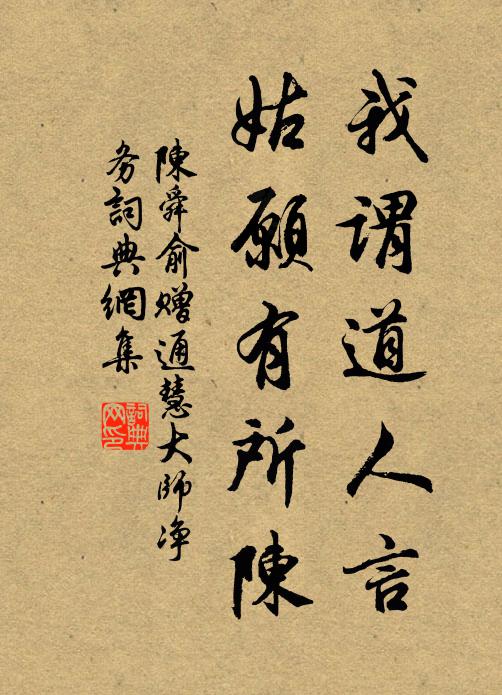 我謂道人言
姑願有所陳
陳舜俞贈通慧大師净
务詞典網集
詞典网印